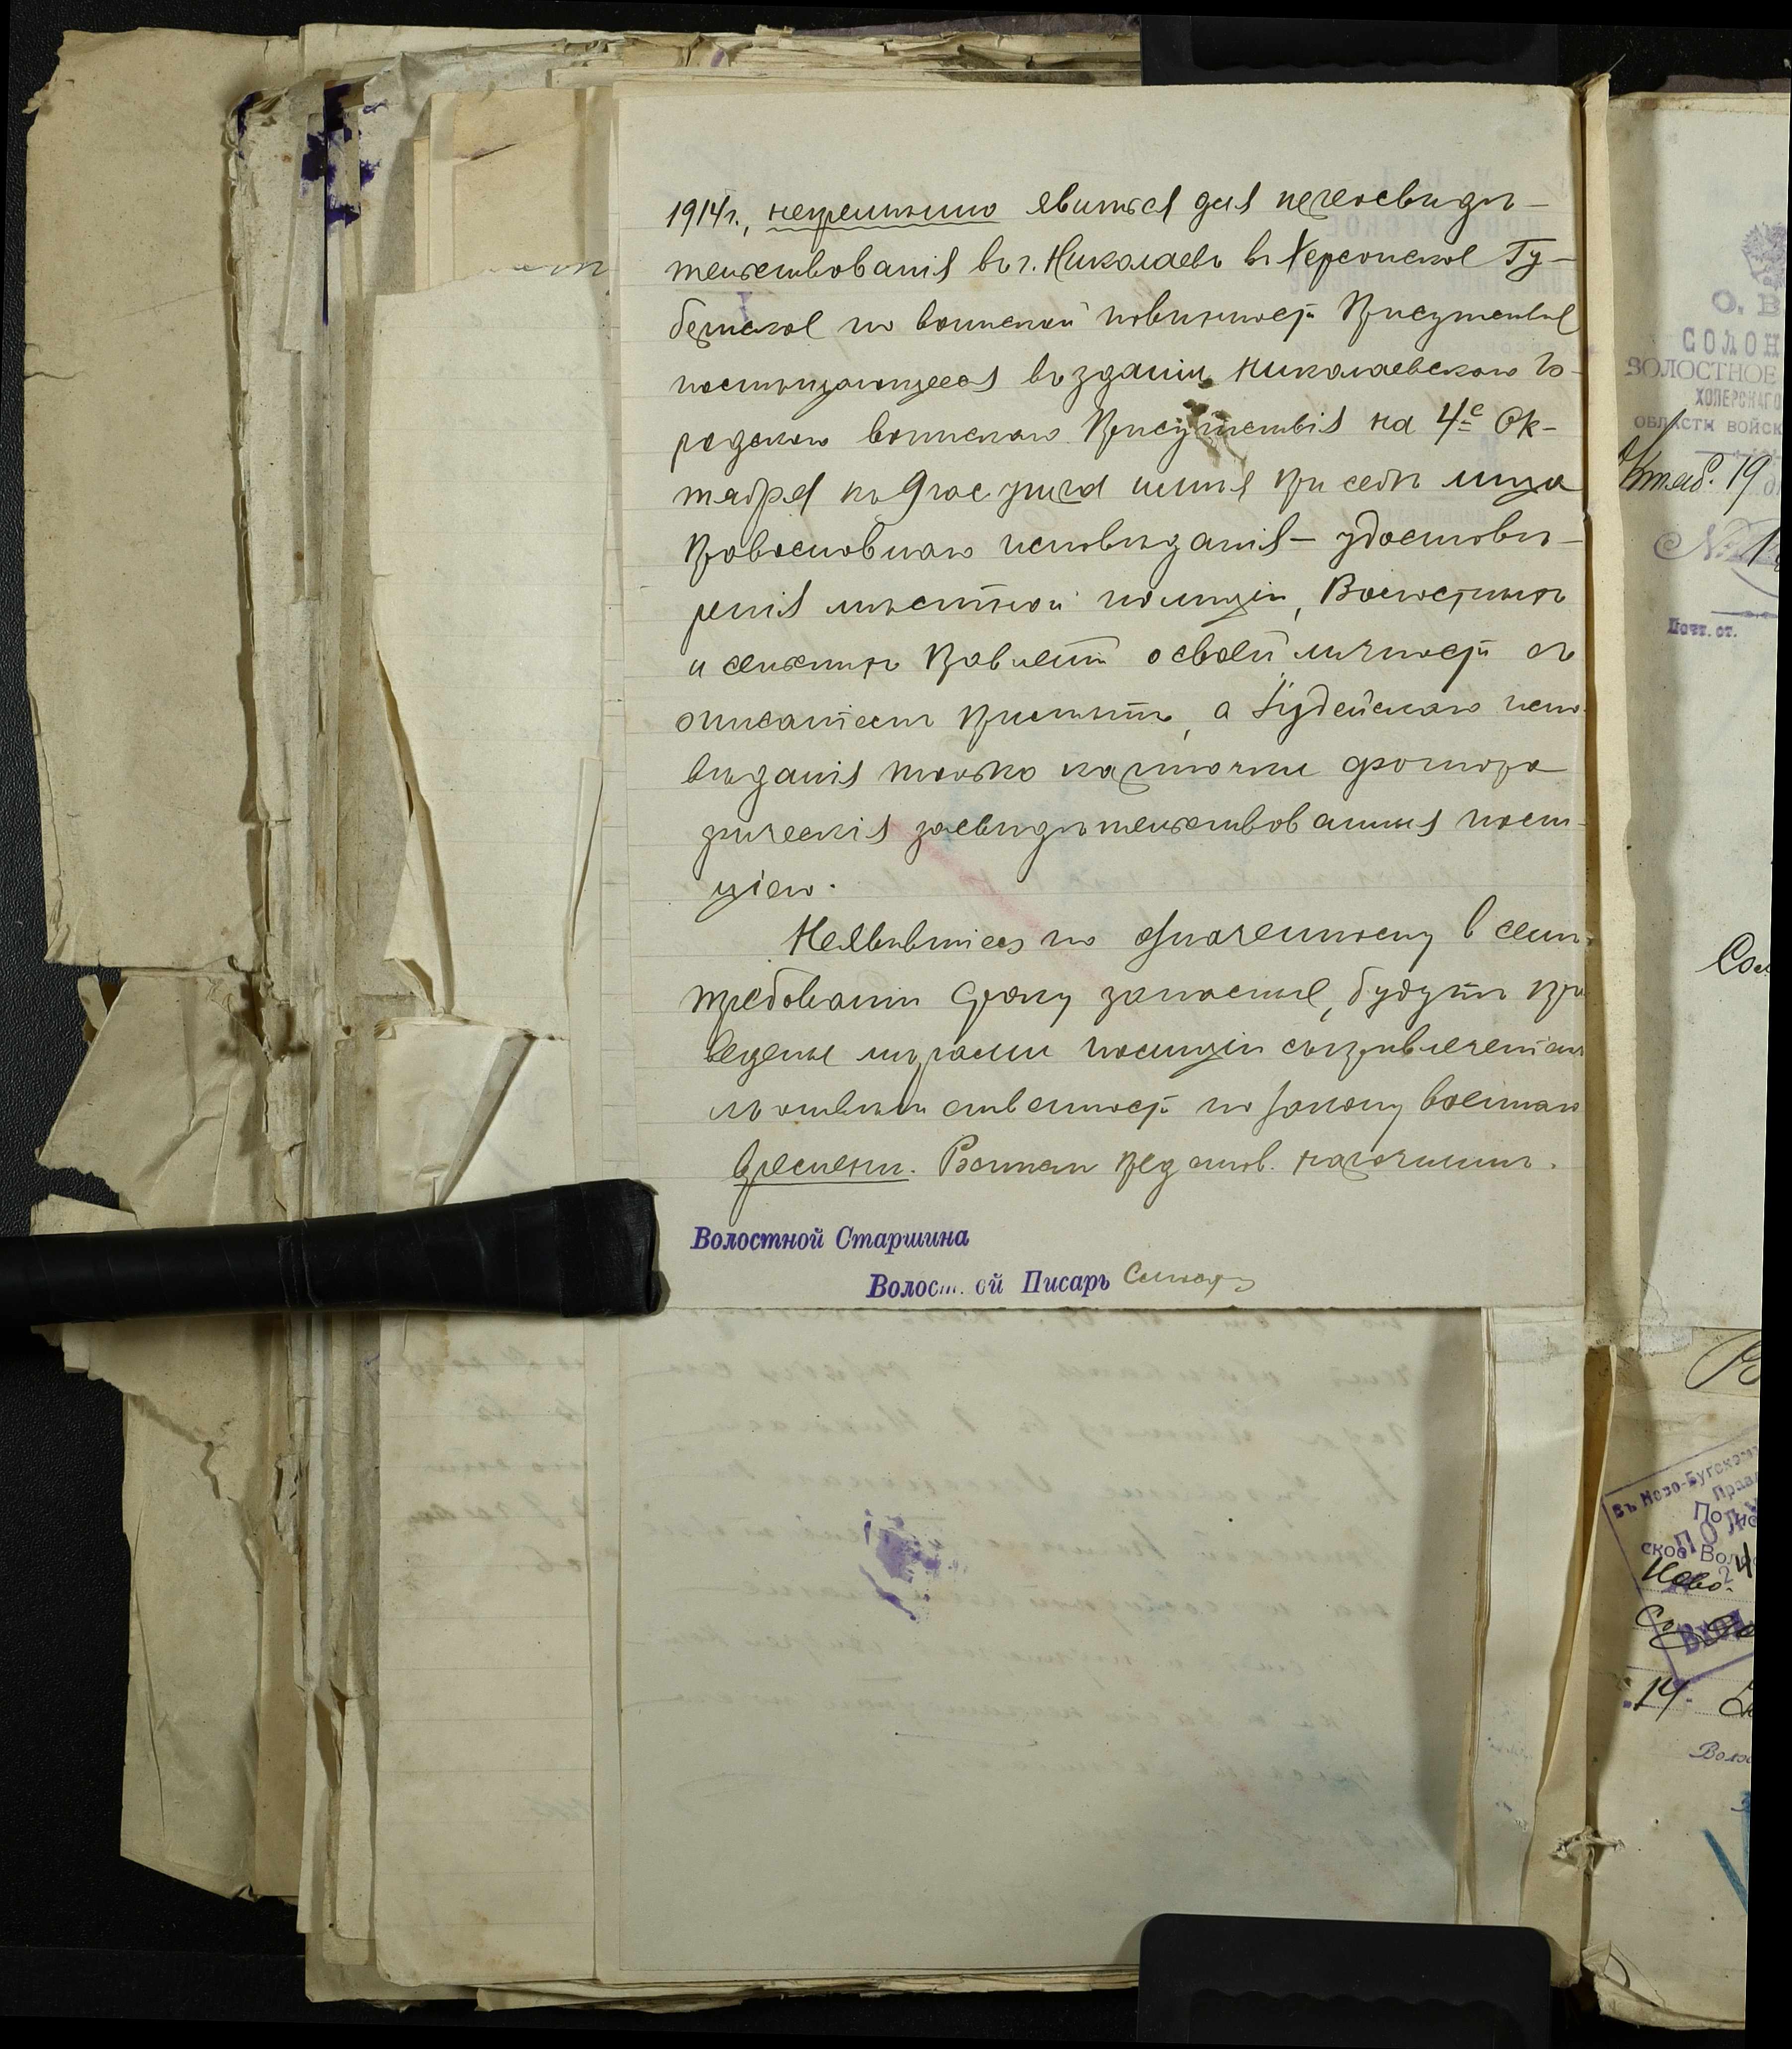 1914г., непремѣнно явиться для переосвидѣ-
тельствованія въ г. Николаевъ въ Херсонское Гу-
бернское по воинской повинности Присутствіе
помѣщающееся въ зданіи Николаевскаго Го-
родского воинскаго Присутствія на 4е Ок-
тября къ 9 час утра имѣя при себѣ лица
Православнаго исповѣданія — удостовѣ-
ренія мѣстной полиціи, Волостныхъ
и сельскихъ Правленій о своей личности съ
описаніемъ примѣтъ, а Іудейскаго испо-
вѣданія только карточки фотогра
фическія засвидѣтельствованныя поли-
ціею.
Неявившіеся по означенному в семъ
требованіи сроку запасные, будутъ при
ведены мѣрами полиціи съ привлеченіемъ
къ отвѣтственности по закону военнаго
времени. Воинск
Волостной Старшина
Волост. ой Писарь
О. В
СОЛОН
ВОЛОСТНОЕ
ХОПЕРСКАГО
ОБЛАСТИ ВОЙСК
Октяб. 19
№
Почт. от.
Сол
Въ Ново-Бугскомъ
Прав
ПОЛУ
ское Воло
Ново-
14.
Воло